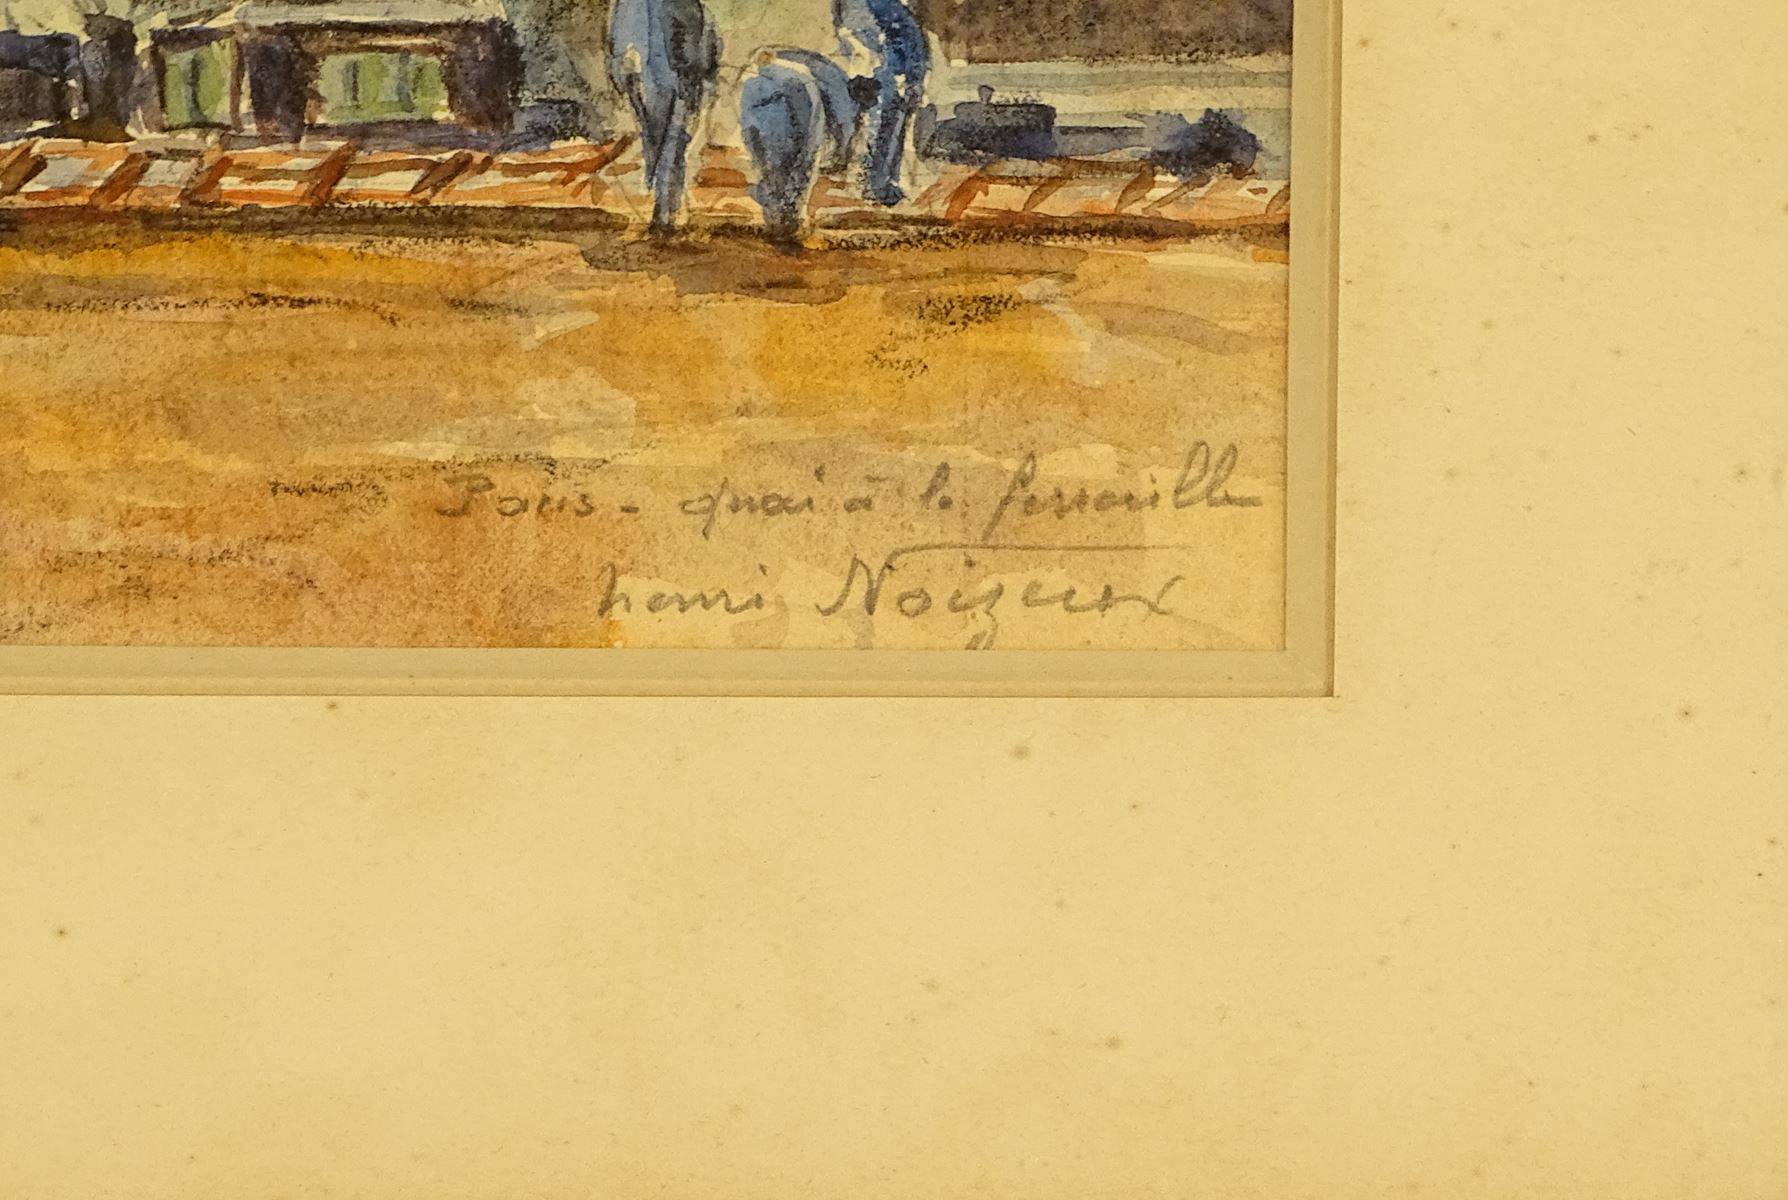 Paris - quai à la ferraille
henri Noizeux